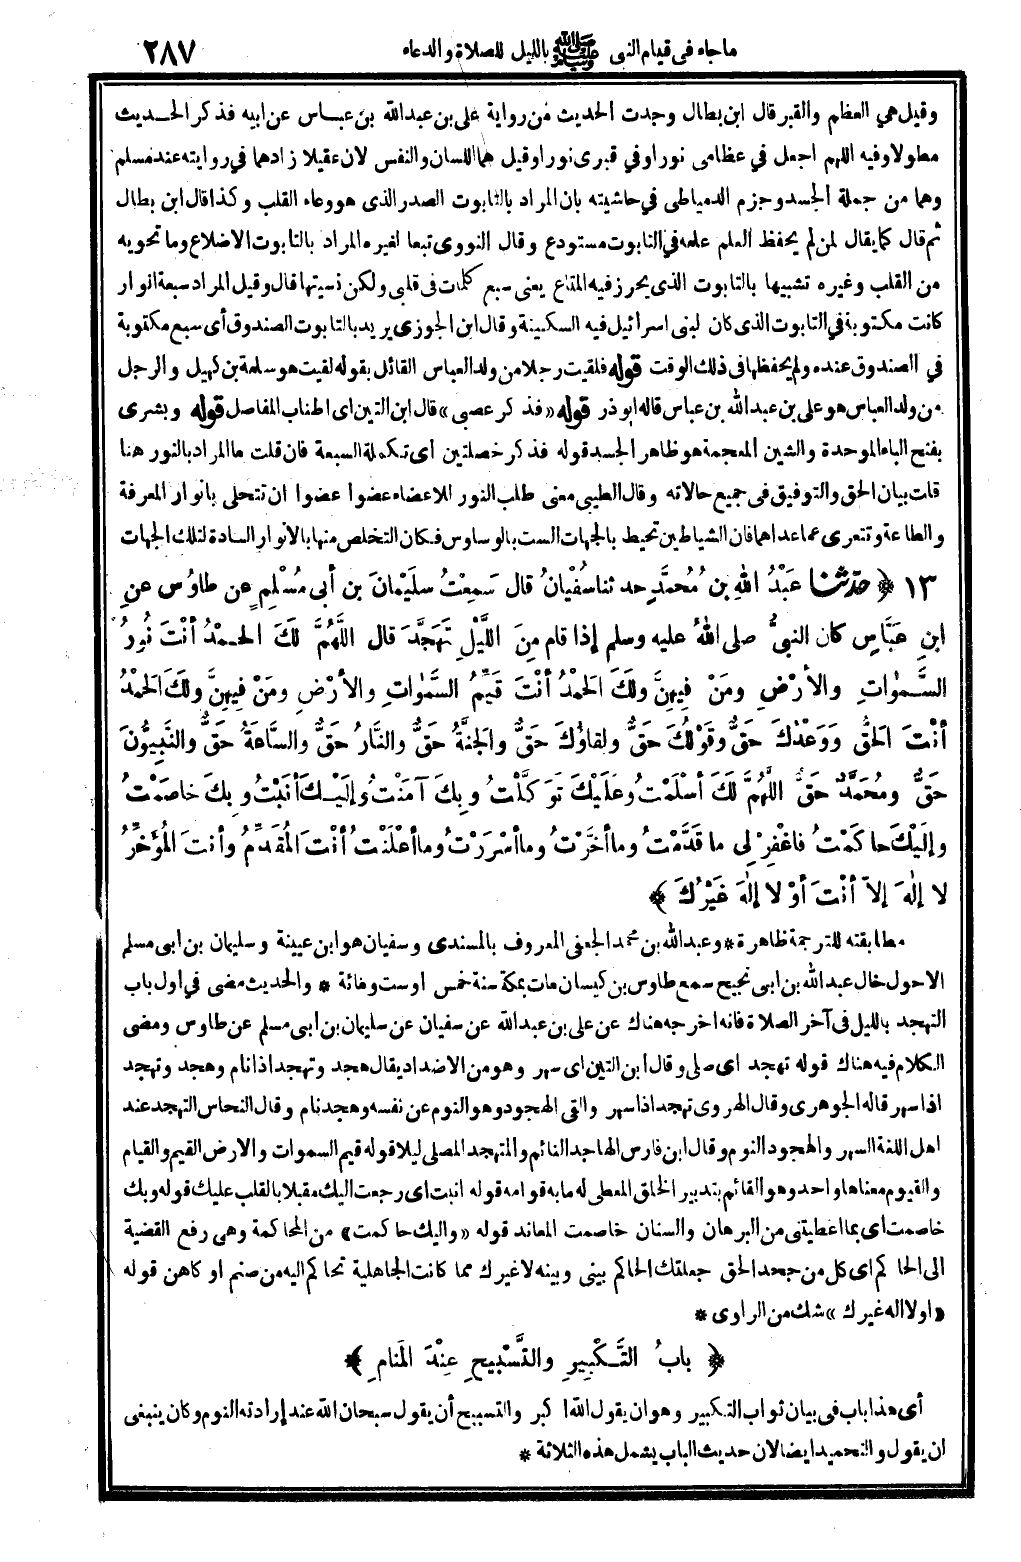 ما جاء فى قيام النبى ﷺ بالليل للصلاة والدعاء ٢٨٧
وقيل هي العظم والقبر قال ابن بطال وجدت الحديث من رواية على بن عبدالله بن عباس عن ابيه فذكر الحديث
مطولا وفيه اللهم اجعل في عظامى نورا وفي قبرى نورا وقيل هما اللسان والنفس لان عقيلا زادهما في روايته عند مسلم
وهما من جملة الجسد وجزم الدمياطى في حاشيته بان المراد بالتابوت الصدر الذى هو وعاء القلب وكذا قال ابن بطال
ثم قال كما يقال لمن لم يحفظ العلم علمه في التابوت مستودع وقال النووى تبعا لغيره المراد بالتابوت الاضلاع وما تحويه
من القلب وغيره تشبيها بالتابوت الذى يحرز فيه المتاع يعنى سبع كلمات فى قلبى ولكن نسيتها قال وقيل المراد سبعة انوار
كانت مكتوبة في التابوت الذى كان لبنى اسرائيل فيه السكينة وقال ابن الجوزى يريد بالتابوت الصندوق أى سبع مكتوبة
في الصندوق عنده ولم يحفظها فى ذلك الوقت قوله فلقيت رجلا من ولد العباس القائل بقوله لقيت هو سلمة بن كهيل والرجل
من ولد العباس هو على بن عبدالله بن عباس قاله ابو ذر قوله «فذكر عصبى» قال ابن التين اى اطناب المفاصل قوله وبشرى
بفتح الباء الموحدة والشين المعجمة هو ظاهر الجسد قوله فذكر خصلتين اى تكملة السبعة فان قلت ما المراد بالنور هنا
قلت بيان الحق والتوفيق فى جميع حالاته وقال الطيبى معنى طلب النور للاعضاء عضوا عضوا ان تتحلى بانوار المعرفة
والطاعة وتتعرى عما عداهما فان الشياطين تحيط بالجهات الست بالوساوس فكان التخلص منها بالانوار السادة لتلك الجهات
١٣ ﴿ حدّثنا عَبْدُ اللهِ بن مُحمدٍ حدثنا سفْيانُ قال سَمِعْتُ سليْمانَ بن أبى مسْلِمٍ عن طاوُسٍ عنِ
ابنِ عبَّاسٍ كان النبىُّ صلى اللهُ عليه وسلم إذا قام مِنَ اللَّيْلِ تَهَجَّدَ قال اللَّهُمَّ لكَ الحمْدُ أنْتَ نُورُ
السَّمواتِ والأرْضِ ومَنْ فيهِنَّ ولكَ الحَمْدُ أنْتَ قَيِّمُ السَّمواتِ والأرْضِ ومَنْ فِيهِنَّ ولكَ الحَمْدُ
أنْتَ الحَقُّ ووَعْدُكَ حَقٌّ وقَوْلُكَ حَقٌّ ولِقاؤُكَ حَقٌّ والجَنَّةُ حَقٌّ والنَّارُ حَقٌّ والسَّاعَةُ حَقٌّ والنَّبِيُّونَ
حَقٌّ ومُحَمَّدٌ حَقٌّ اللَّهُمَّ لكَ أسْلَمْتُ وعَلَيْكَ تَوَكَّلْتُ وبِكَ آمَنْتُ وإلَيْكَ أنَبْتُ وبِكَ خاصَمْتُ
وإلَيْكَ حاكَمْتُ فاغْفِرْ لِى ما قَدَّمْتُ وما أخَّرْتُ وما أسْرَرْتُ وما أعْلَنْتُ أنْتَ المُقَدِّمُ وأنتَ المُؤَخِّرُ
لا إلٰهَ إلاّ أنْتَ أوْ لا إلٰهَ غَيْرُكَ ﴾
مطابقته للترجمة ظاهرة * وعبدالله بن محمد الجعفى المعروف بالمسندى وسفيان هو ابن عيينة وسليمان بن ابى مسلم
الاحول خال عبدالله بن ابى نجيح سمع طاوس بن كيسان مات بمكة سنة خمس اوست ومائة * والحديث مضى في اول باب
التهجد بالليل فى آخر الصلاة فانه اخرجه هناك عن على بن عبدالله عن سفيان عن سليمان بن ابى مسلم عن طاوس ومضى
الكلام فيه هناك قوله تهجد اى صلى وقال ابن التين اى سهر وهو من الاضداد يقال هجد وتهجد اذا نام وهجد وتهجد
اذا سهر قاله الجوهرى وقال الهروى تهجد اذا سهر والقى الهجود وهو النوم عن نفسه وهجد نام وقال النحاس التهجد عند
اهل اللغة السهر والهجود النوم وقال ابن فارس الهاجد النائم والمتهجد المصلى ليلا قوله قيم السموات والارض القيم والقيام
والقيوم معناها واحد وهو القائم بتدبير الخلق المعطى له ما به قوامه قوله انبت اى رجعت اليك مقبلا بالقلب عليك قوله وبك
خاصمت اى بما اعطيتنى من البرهان والسنان خاصمت المعاند قوله «واليك حاكمت» من المحاكمة وهى رفع القضية
الى الحاكم اى كل من جحد الحق جعلتك الحاكم بينى وبينه لا غيرك مما كانت الجاهلية تحاكم اليه من صنم او كاهن قوله
«او لا اله غيرك» شك من الراوى *
﴿ بابُ التَّكْبِيرِ والتَّسْبِيحِ عِنْدَ المَنامِ ﴾
أى هذا باب فى بيان ثواب التكبير وهو ان يقول الله اكبر والتسبيح أن يقول سبحان الله عند إرادته النوم وكان ينبغى
ان يقول والتحميد ايضا لان حديث الباب يشمل هذه الثلاثة *